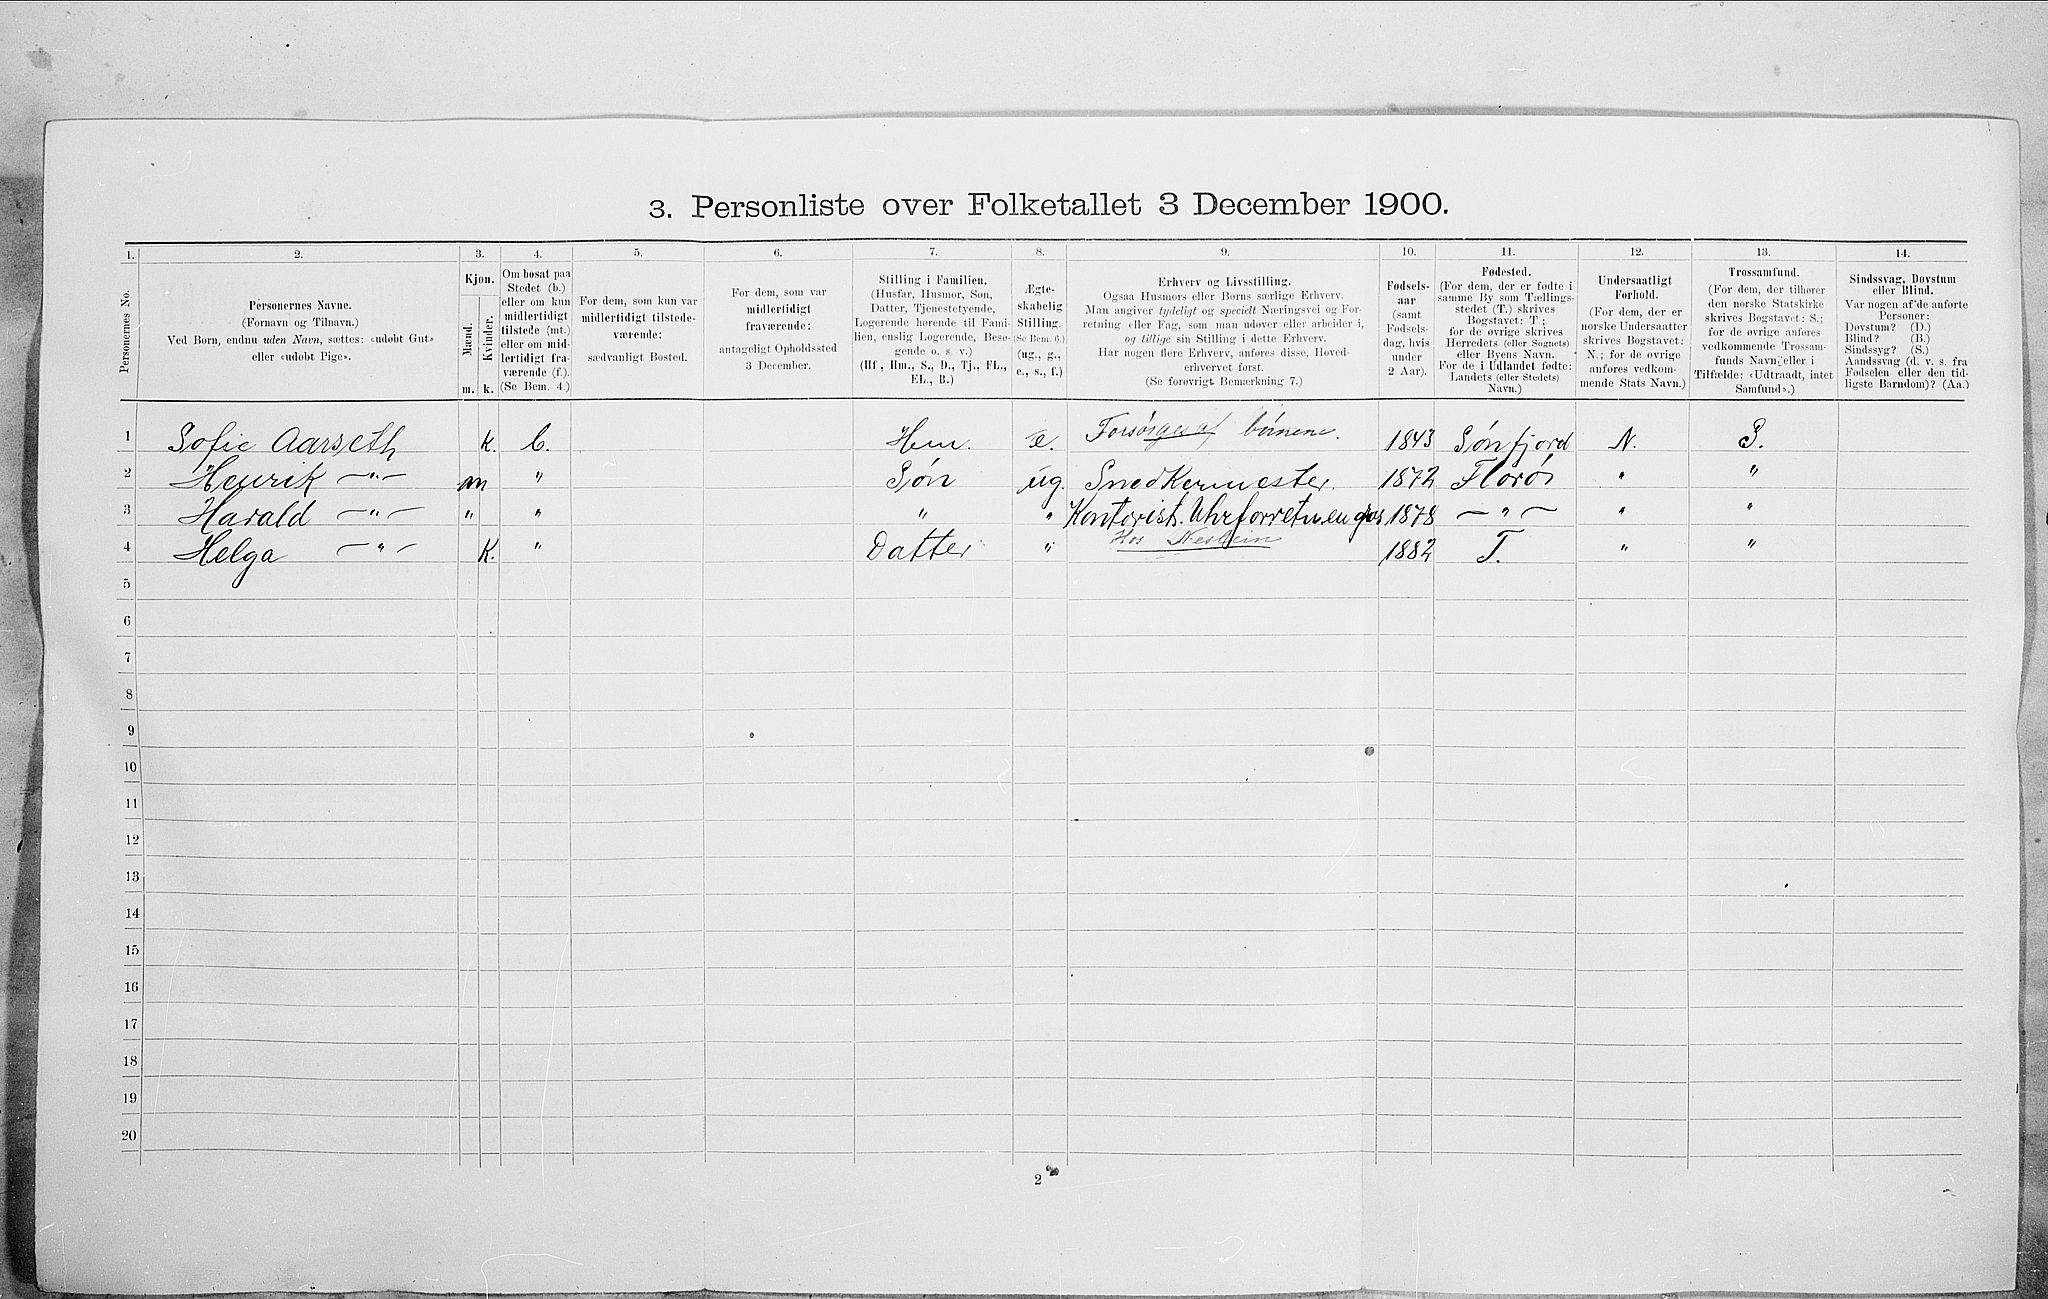 3. Personliste over Folketallet 3 December 1900.
1. 2. 3. 4. 5. 6. 7. 8. 9. 10. 11. 12. 13. 14.
Personernes No.
Personernes Navne.
(Fornavn og Tilnavn.)
Ved Børn, endnu uden Navn, sættes: «udøbt Gut»
eller «udøbt Pige».
Kjøn.
Mænd.
Kvinder.
m. k.
Om bosat paa
Stedet (b.)
eller om kun
midlertidigt
tilstede (mt.)
eller om mid-
lertidigt fra-
værende (f.).
(Se Bem. 4.)
For dem, som kun var
midlertidigt tilstede-
værende:
sædvanligt Bosted.
For dem, som var
midlertidigt
fraværende:
antageligt Opholdssted
3 December.
Stilling i Familien.
(Husfar, Husmor, Søn,
Datter, Tjenestetyende,
Logerende hørende til Fami-
lien, enslig Logerende, Besø-
gende o. s. v.)
(Hf, Hm., S., D., Tj., FL.,
EL., B.)
Ægte-
skabelig
Stilling.
(Se Bem. 6.)
(ug., g.,
e., s., f.)
Erhverv og Livsstilling.
Ogsaa Husmors eller Børns særlige Erhverv.
Man angiver tydeligt og specielt Næringsvei og For-
retning eller Fag, som man udøver eller arbeider i,
og tillige sin Stilling i dette Erhverv.
Har nogen flere Erhverv, anføres disse, Hoved-
erhvervet først.
(Se forøvrigt Bemærkning 7.)
Fødsels-
aar
(samt
Fødsels-
dag, hvis
under
2 Aar).
Fødested.
(For dem, der er fødte i
samme By som Tællings-
stedet (T.) skrives
Bogstavet: T;
for de øvrige skrives
Herredets (eller Sognets)
eller Byens Navn.
For de i Udlandet fødte:
Landets (eller Stedets)
Navn.)
Undersaatligt
Forhold.
(For dem, der er
norske Undersaatter
skrives Bogstavet:
N.; for de øvrige
anføres vedkom-
mende Stats Navn.)
Trossamfund.
(For dem, der tilhører
den norske Statskirke
skrives Bogstavet: S.;
for de øvrige anføres
vedkommende Trossam-
funds Navn, eller i
Tilfælde: «Udtraadt, intet
Samfund».)
Sindssvag, Døvstum
eller Blind.
Var nogen af de anførte
Personer:
Døvstum? (D.)
Blind? (B.)
Sindssyg? (S.)
Aandssvag (d. v. s. fra
Fødselen eller den tid-
ligste Barndom)? (Aa.)
1 Sofie Aarseth k. b. Hm. e. Forsørges af børnene. 1843 Sønfjord N. S.
2 Henrik —„— m „ Søn ug. Snedkermester. 1872 Florø „ „
3 Harald —„— „ „ „ „ Kontorist. Uhrforretningos 1878 —„— „ „
Hos
4 Helga —„— K. „ Datter „ 1882 T. „ „
5
6
7
8
9
10
11
12
13
14
15
16
17
18
19
20
2